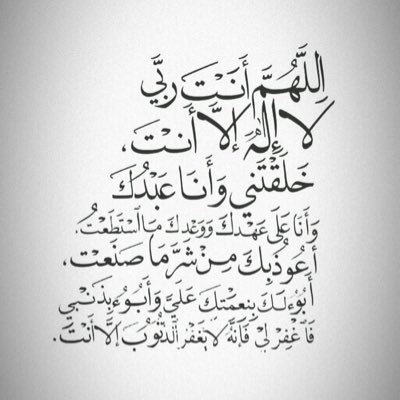 اللَّهُمَّ أَنْتَ رَبِّي
لَا إِلَهَ إِلَّا أَنْتَ،
خَلَقْتَنِي وَأَنَا عَبْدُكَ
وَأَنَا عَلَى عَهْدِكَ وَوَعْدِكَ مَا اسْتَطَعْتُ.
أَعُوذُ بِكَ مِنْ شَرِّ مَا صَنَعْتُ،
أَبُوءُ لَكَ بِنِعْمَتِكَ عَلَيَّ وَأَبُوءُ بِذَنْبِي
فَاغْفِرْ لِي فَإِنَّهُ لَا يَغْفِرُ الذُّنُوبَ إِلَّا أَنْتَ.